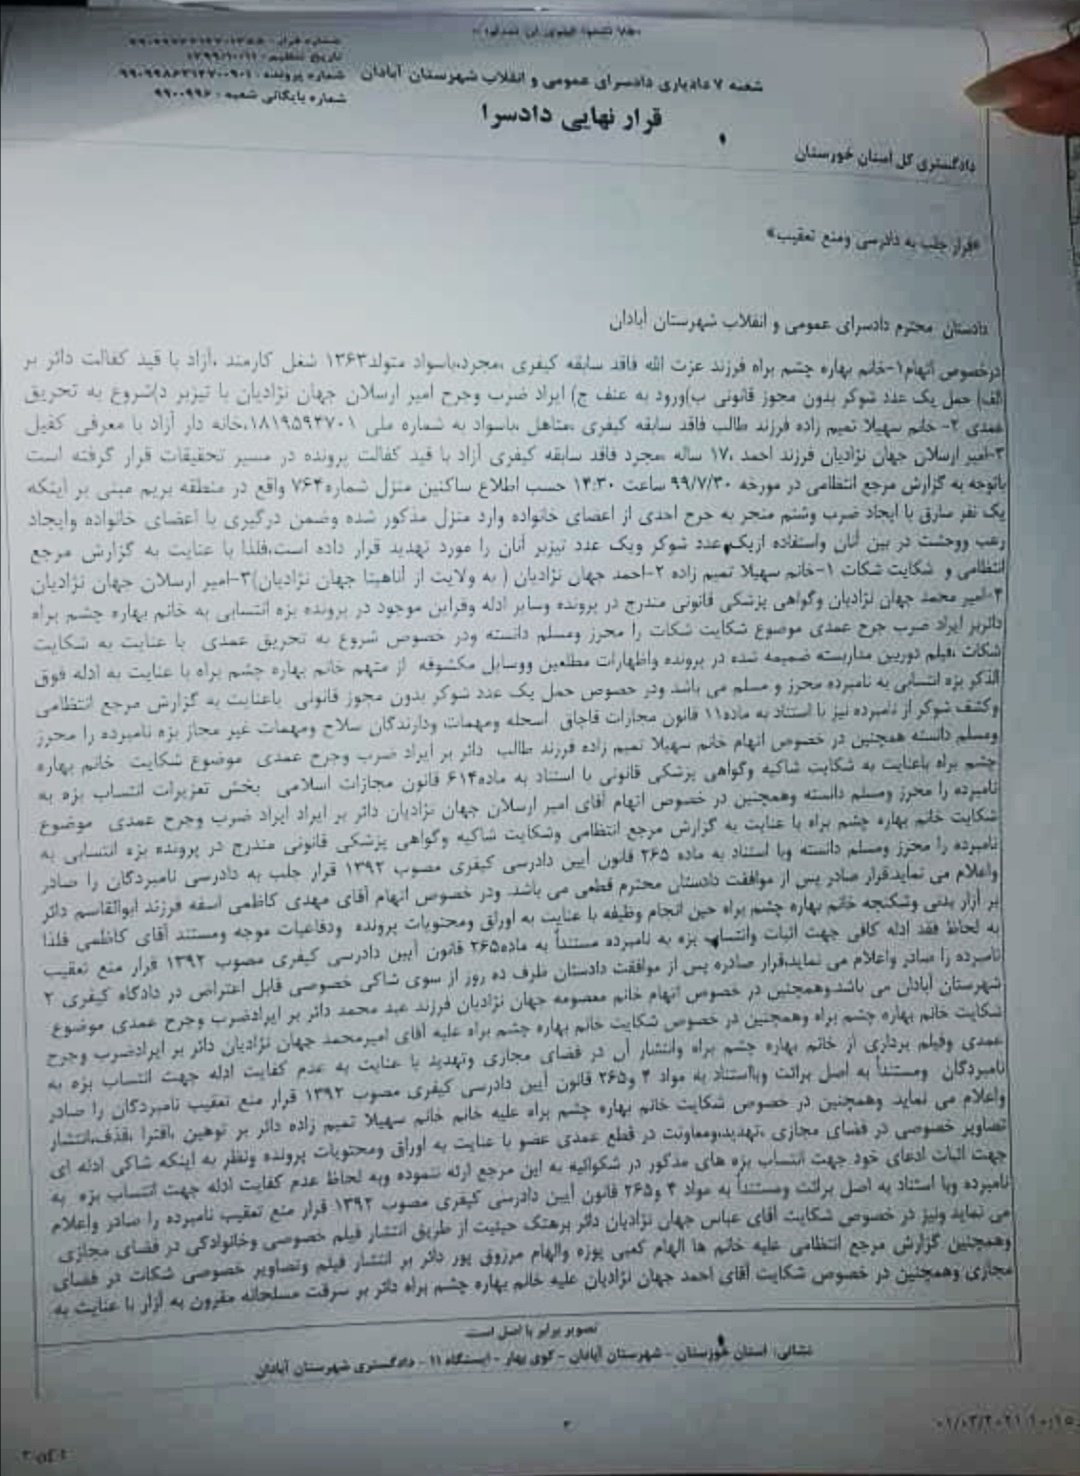 شماره قرار:
تاریخ تنظیم: ۱۳۹۹/۱۰/۱۱
شماره پرونده: ۹۹۰۹۹۸۶۳۱۴۷۰۰۹۰۱
شماره بایگانی شعبه: ۹۹۰۰۹۹۶
شعبه ۷ دادیاری دادسرای عمومی و انقلاب شهرستان آبادان
قرار نهایی دادسرا
دادگستری کل استان خوزستان
«قرار جلب به دادرسی ومنع تعقیب»
دادستان محترم دادسرای عمومی و انقلاب شهرستان آبادان
درخصوص اتهام۱-خانم بهاره چشم براه فرزند عزت الله فاقد سابقه کیفری ،مجرد،باسواد متولد۱۳۶۳ شغل کارمند ،آزاد با قید کفالت دائر بر
الف) حمل یک عدد شوکر بدون مجوز قانونی ب)ورود به عنف ج) ایراد ضرب وجرح امیر ارسلان جهان نژادیان با تیزبر د)شروع به تحریق
عمدی ۲- خانم سهیلا تمیم زاده فرزند طالب فاقد سابقه کیفری ،متاهل ،باسواد به شماره ملی ۱۸۱۹۵۹۴۷۰۱،خانه دار آزاد با معرفی کفیل
۳-امیر ارسلان جهان نژادیان فرزند احمد ،۱۷ ساله ،مجرد فاقد سابقه کیفری آزاد با قید کفالت پرونده در مسیر تحقیقات قرار گرفته است
باتوجه به گزارش مرجع انتظامی در مورخه ۹۹/۷/۳۰ ساعت ۱۴:۳۰ حسب اطلاع ساکنین منزل شماره۷۶۴ واقع در منطقه بریم مبنی بر اینکه
یک نفر سارق با ایجاد ضرب وشتم منجر به جرح احدی از اعضای خانواده وارد منزل مذکور شده وضمن درگیری با اعضای خانواده وایجاد
رعب ووحشت در بین آنان واستفاده ازیک عدد شوکر ویک عدد تیزبر آنان را مورد تهدید قرار داده است،فلذا با عنایت به گزارش مرجع
انتظامی و شکایت شکات ۱-خانم سهیلا تمیم زاده ۲-احمد جهان نژادیان ( به ولایت از آناهیتا جهان نژادیان)۳-امیر ارسلان جهان نژادیان
۴-امیر محمد جهان نژادیان وگواهی پزشکی قانونی مندرج در پرونده وسایر ادله وقراین موجود در پرونده بزه انتسابی به خانم بهاره چشم براه
دائربر ایراد ضرب جرح عمدی موضوع شکایت شکات را محرز ومسلم دانسته ودر خصوص شروع به تحریق عمدی با عنایت به شکایت
شکات ،فیلم دوربین مداربسته ضمیمه شده در پرونده واظهارات مطلعین ووسایل مکشوفه از متهم خانم بهاره چشم براه با عنایت به ادله فوق
الذکر بزه انتسابی به نامبرده محرز و مسلم می باشد ودر خصوص حمل یک عدد شوکر بدون مجوز قانونی باعنایت به گزارش مرجع انتظامی
وکشف شوکر از نامبرده نیز با استناد به ماده۱۱ قانون مجازات قاچاق اسحله ومهمات ودارندگان سلاح ومهمات غیر مجاز بزه نامبرده را محرز
ومسلم دانسته همچنین در خصوص اتهام خانم سهیلا تمیم زاده فرزند طالب دائر بر ایراد ضرب وجرح عمدی موضوع شکایت خانم بهاره
چشم براه باعنایت به شکایت شاکیه وگواهی پزشکی قانونی با استناد به ماده۶۱۴ قانون مجازات اسلامی بخش تعزیرات انتساب بزه به
نامبرده را محرز ومسلم دانسته وهمچنین در خصوص اتهام آقای امیر ارسلان جهان نژادیان دائر بر ایراد ایراد ضرب وجرح عمدی موضوع
شکایت خانم بهاره چشم براه با عنایت به گزارش مرجع انتظامی وشکایت شاکیه وگواهی پزشکی قانونی مندرج در پرونده بزه انتسابی به
نامبرده را محرز ومسلم دانسته وبا استناد به ماده ۲۶۵ قانون آیین دادرسی کیفری مصوب ۱۳۹۲ قرار جلب به دادرسی نامبردگان را صادر
واعلام می نماید.قرار صادر پس از موافقت دادستان محترم قطعی می باشد. ودر خصوص اتهام آقای مهدی کاظمی اسفه فرزند ابوالقاسم دائر
بر آزار بدنی وشکنجه خانم بهاره چشم براه حین انجام وظیفه با عنایت به اوراق ومحتویات پرونده ودفاعیات موجه ومستند آقای کاظمی فلذا
به لحاظ فقد ادله کافی جهت اثبات وانتساب بزه به نامبرده مستنداً به ماده۲۶۵ قانون آیین دادرسی کیفری مصوب ۱۳۹۲ قرار منع تعقیب
نامبرده را صادر واعلام می نماید،قرار صادره پس از موافقت دادستان ظرف ده روز از سوی شاکی خصوصی قابل اعتراض در دادگاه کیفری ۲
شهرستان آبادان می باشد.وهمچنین در خصوص اتهام خانم معصومه جهان نژادیان فرزند عبد محمد دائر بر ایرادضرب وجرح عمدی موضوع
شکایت خانم بهاره چشم براه وهمچنین در خصوص شکایت خانم بهاره چشم براه علیه آقای امیرمحمد جهان نژادیان دائر بر ایرادضرب وجرح
عمدی وفیلم برداری از خانم بهاره چشم براه وانتشار آن در فضای مجازی وتهدید با عنایت به عدم کفایت ادله جهت انتساب بزه به
نامبردگان ومستنداً به اصل برائت وبااستناد به مواد ۴ و۲۶۵ قانون آیین دادرسی کیفری مصوب ۱۳۹۲ قرار منع تعقیب نامبردگان را صادر
واعلام می نماید. وهمچنین در خصوص شکایت خانم بهاره چشم براه علیه خانم خانم سهیلا تمیم زاده دائر بر توهین ،افترا ،قذف،انتشار
تصاویر خصوصی در فضای مجازی ،تهدید،ومعاونت در قطع عمدی عضو با عنایت به اوراق ومحتویات پرونده ونظر به اینکه شاکی ادله ای
جهت اثبات ادعای خود جهت انتساب بزه های مذکور در شکوائیه به این مرجع ارئه ننموده وبه لحاظ عدم کفایت ادله جهت انتساب بزه به
نامبرده وبا استناد به اصل برائت ومستنداً به مواد ۴ و۲۶۵ قانون آیین دادرسی کیفری مصوب ۱۳۹۲ قرار منع تعقیب نامبرده را صادر واعلام
می نماید ونیز در خصوص شکایت آقای عباس جهان نژادیان دائر برهتک حیثیت از طریق انتشار فیلم خصوصی وخانوادگی در فضای مجازی
وهمچنین گزارش مرجع انتظامی علیه خانم ها الهام کمبی پوزه والهام مرزوق پور دائر بر انتشار فیلم وتصاویر خصوصی شکات در فضای
مجازی وهمچنین در خصوص شکایت آقای احمد جهان نژادیان علیه خانم بهاره چشم براه دائر بر سرقت مسلحانه مقرون به آزار با عنایت به
تصویر برابر با اصل است.
نشانی: استان خوزستان - شهرستان آبادان - کوی بهار - ایستگاه ۱۱ - دادگستری شهرستان آبادان
۲